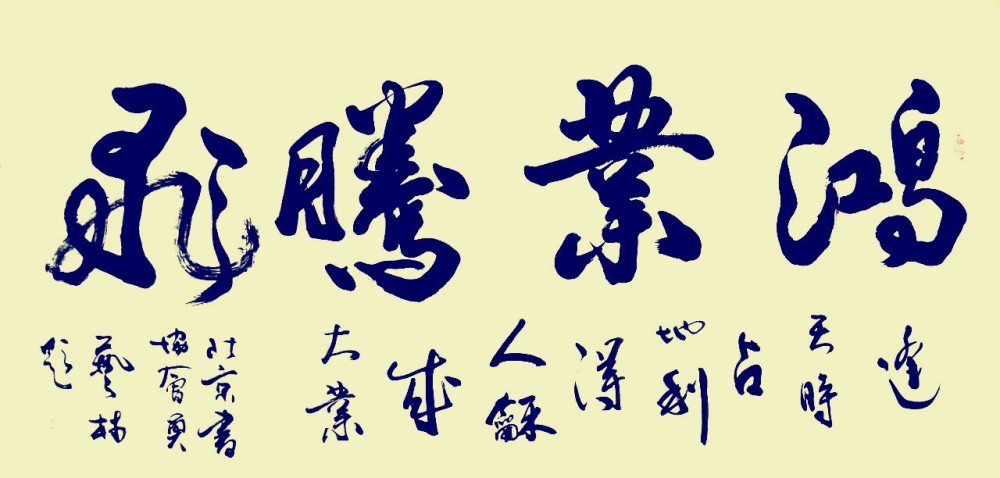 鸿業騰飛
逢
天時
占
地利
得
人龢
成
大業
北京書
協會員
藝林
題